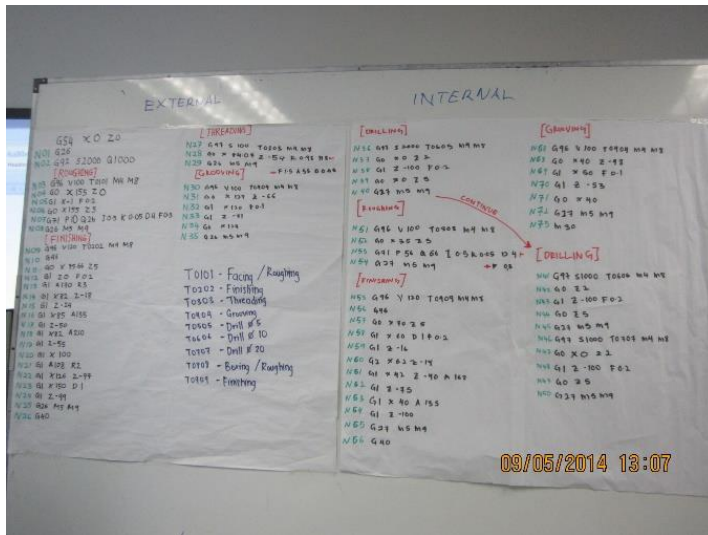 EXTERNAL
G54 X0 Z0
N01 G26
N02 G92 S2000 Q1000
[ROUGHING]
N03 G96 V100 T0101 M4 M8
N04 G0 X155 Z0
N05 G1 X-1 F0.2
N06 G0 X155 Z5
N08 G26 M5 M9
[FINISHING]
N09 G96 V100 T0202 M4 M8
N10 G46
N11 G0 X Z5
N12 G1 Z0 F0.2
N13 G1 R3
N14 G1 X82 Z-18
N15 G1 Z-24
N16 G1 X85 A155
N17 G1 Z-50
N18 G1 X82 A210
N19 G1 Z-55
N20 G1 X100
N21 G1 R2
N22 G1 X126 Z-94
N23 G1 X150 D1
N24 G1 Z-99
N25 G26 M5 M9
N26 G40
[THREADING]
N27 G97 S100 T0303 M4 M8
N28 G0 Z-54
N29 G26 M5 M9
[GROOVING]
N30 G96 V100 T0404 M4 M8
N31 G0 X Z-66
N32 G1 X F0.1
N33 G1 Z
N34 G0 X
N35 G26 M5 M9
T0101 - Facing / Roughing
T0202 - Finishing
T0303 - Threading
T0404 - Grooving
T0505 - Drill ø 5
T0606 - Drill ø 10
T0707 - Drill ø 20
T0808 - Boring / Roughing
T0909 - Finishing
INTERNAL
[DRILLING]
N36 G97 T0505 M4 M8
N37 G0 X0 Z2
N38 G1 Z-100 F0.2
N39 G0 X0 Z5
N40 G27 M5 M9
CONTINUE
[ROUGHING]
N51 G96 V100 T0808 M4 M8
N52 G0 X35 Z5
N54 G27 M5 M9
[FINISHING]
N55 G96 V120 T0909 M4 M8
N56 G46
N57 G0 X70 Z5
N58 G1 X60 D1 F0.2
N59 G1 Z-16
N60 G2 X62 Z-15
N61 G1 X42 Z-40
N62 G1 Z-75
N63 G1 X40 A155
N64 G1 Z-100
N65 G27 M5 M9
N66 G40
[GROOVING]
N67 G96 V100 T0909 M4 M8
N68 G0 X40 Z-48
N69 G1 X60 F0.1
N70 G1 Z-53
N71 G0 X40
N72 G27 M5 M9
N73 M30
[DRILLING]
N41 G97 S1000 T0606 M4 M8
N42 G0 Z2
N43 G1 Z-100 F0.2
N44 G0 Z5
N45 G27 M5 M9
N46 G97 S1000 T0707 M4 M8
N47 G0 X0 Z2
N48 G1 Z-100 F0.2
N49 G0 Z5
N50 G27 M5 M9
09/05/2014 13:07